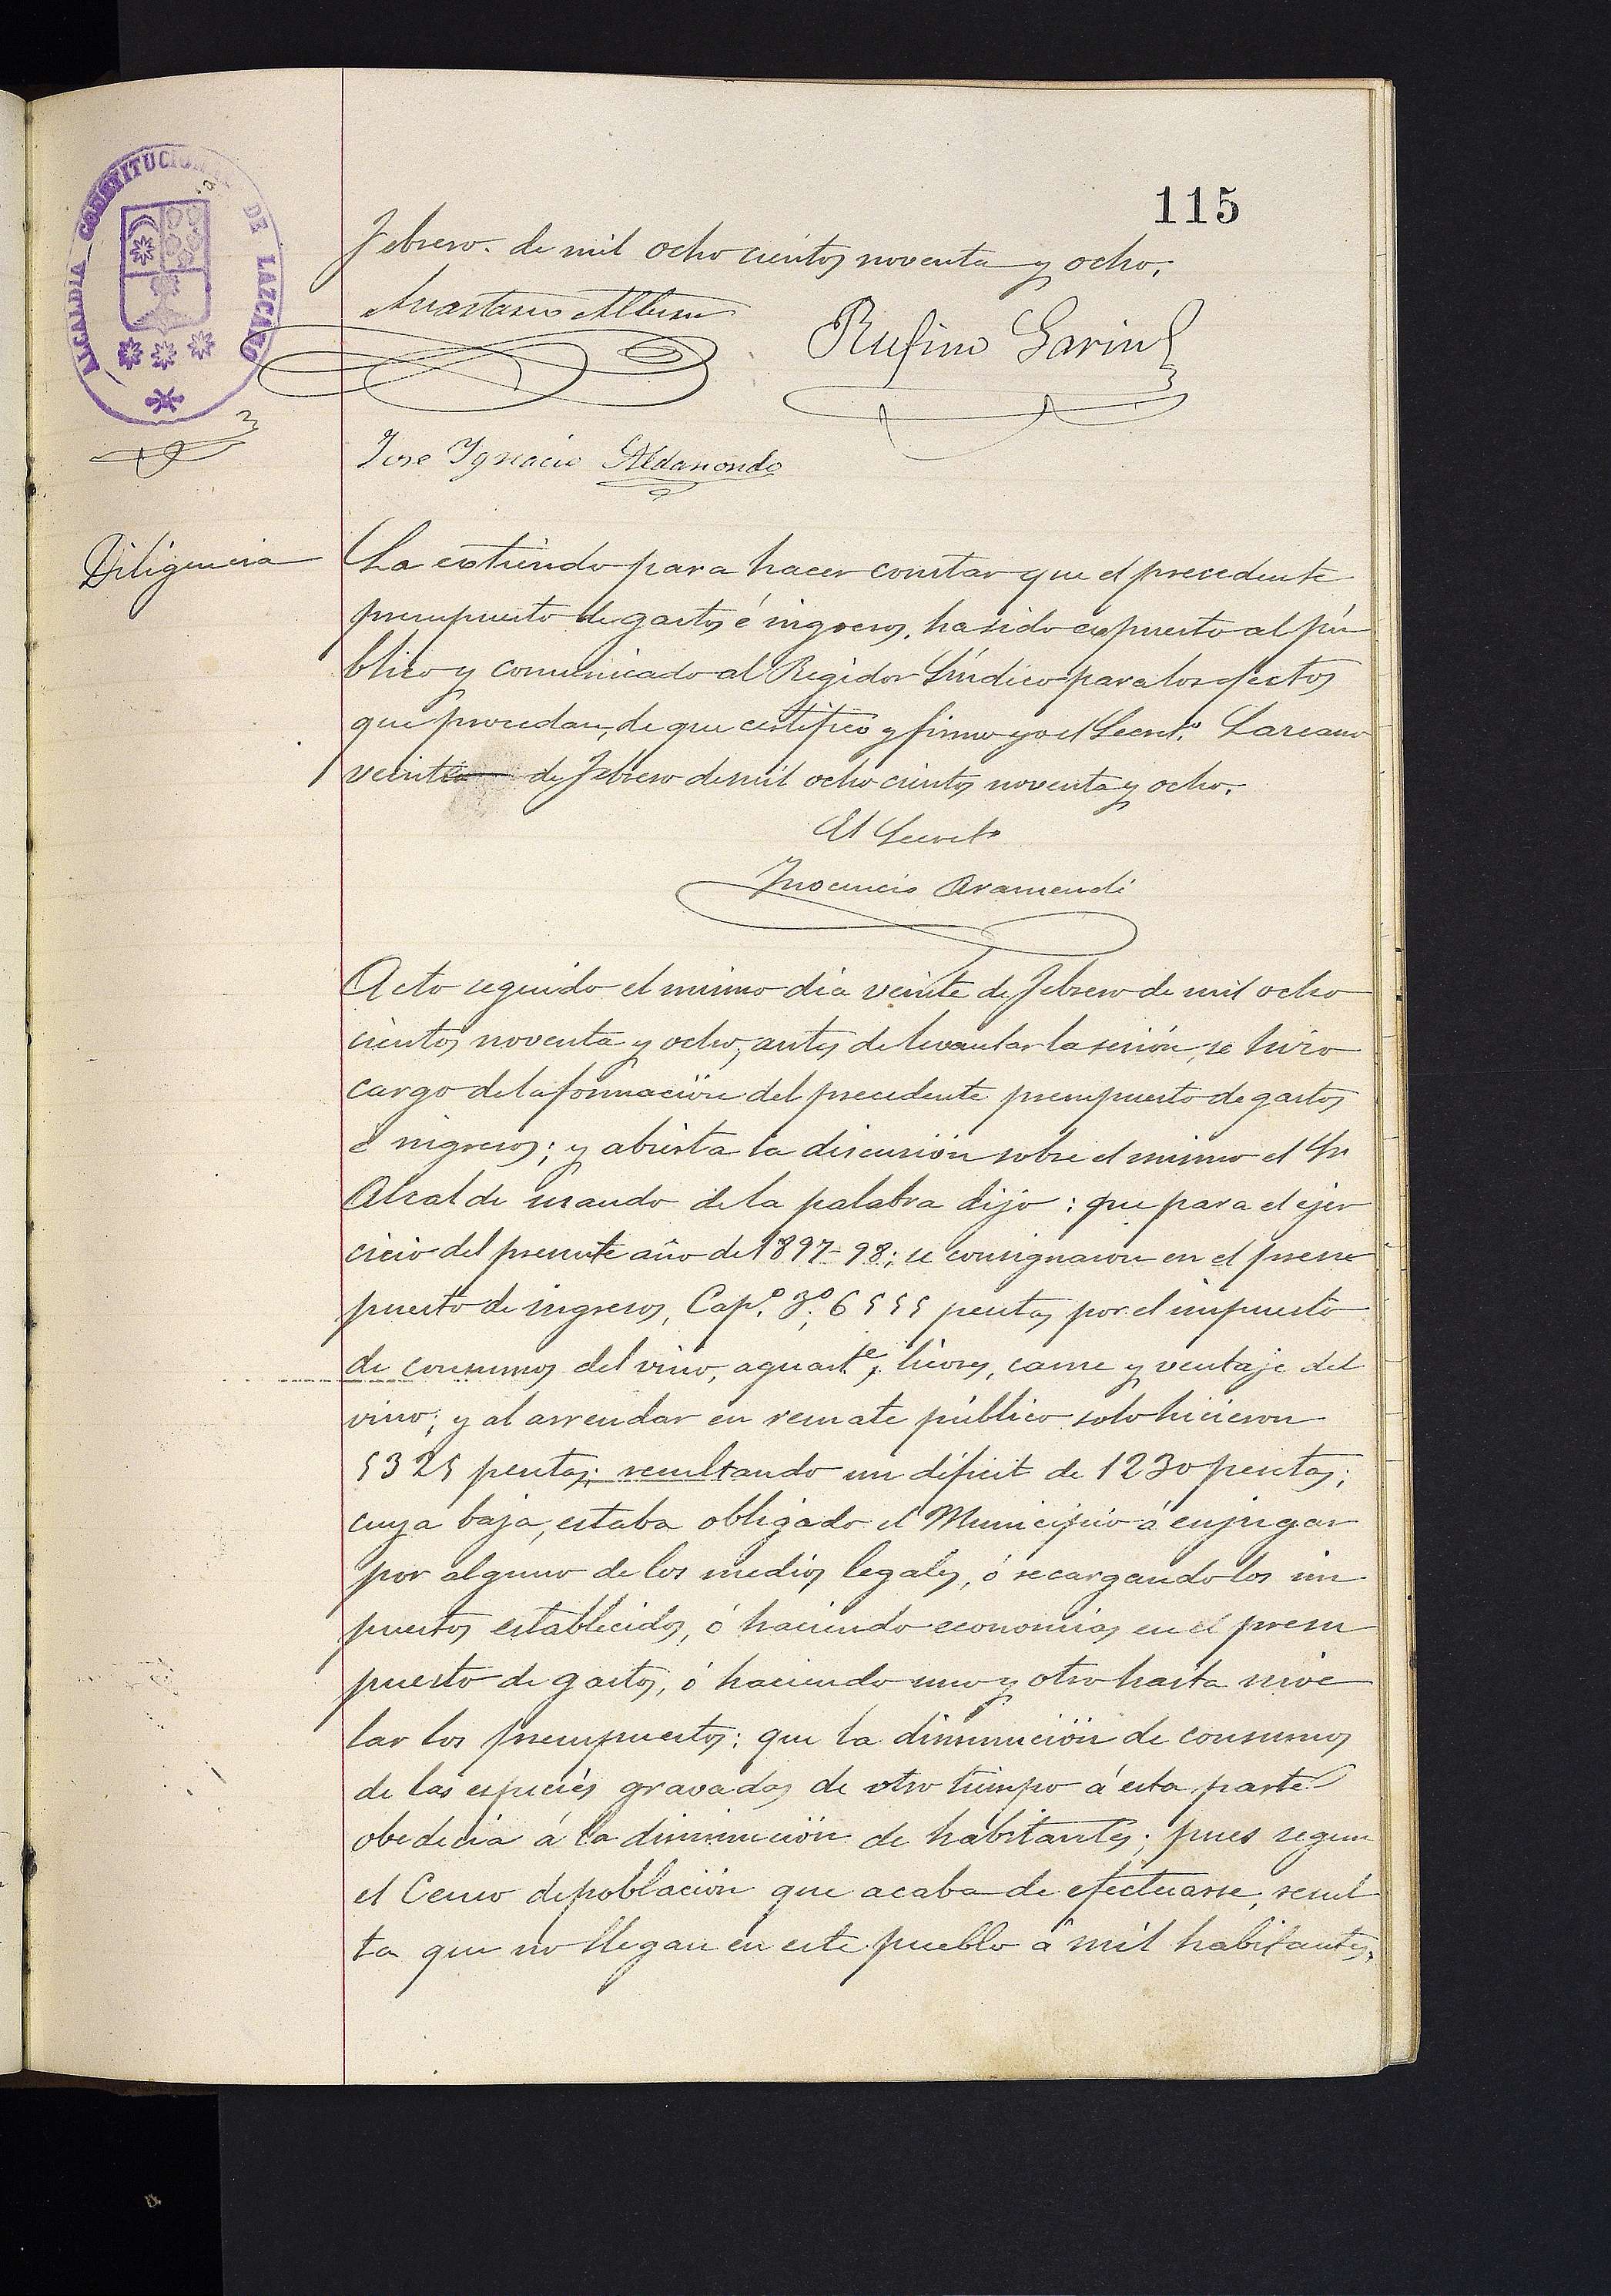 115
ALCALDÍA CONSTITUCIONAL DE LAZCANO
Febrero. de mil ocho cientos noventa y ocho.
Anastasio Albisu
Rufino Garin
Jose Ygnacio Aldanondo
Diligencia
La extiendo para hacer constar que el precedente
presupuesto de gastos é ingresos, ha sido expuesto al pú
blico y comunicado al Regidor Síndico para los efectos
que procedan, de que certifico y firmo yo el Secret.º Lazcano
veinte de Febrero de mil ocho cientos noventa y ocho.
El Secretº
Ynocencio Aramendi
Acto seguido el mismo dia veinte de Febrero de mil ocho
cientos noventa y ocho, antes de levantar la sesión, se hizo
cargo de la formación del precedente presupuesto de gastos
é ingresos; y abierta la discusión sobre el mismo el Sr
Alcalde usando de la palabra dijo: que para el ejer
cicio del presente año de 1897-98; se consignaron en el presu
puesto de ingresos, Cap.º 3º, 6555 pesetas por el impuesto
de consumos del vino, aguarte, licores, carne y ventaje del
vino; y al arrendar en remate público solo hicieron
5325 pesetas; resultando un déficit de 1230 pesetas;
cuya baja, estaba obligado el Municipio á enjugar
por alguno de los medios legales, ó recargando los im
puestos establecidos, ó haciendo economias en el presu
puesto de gastos, ó haciendo uno y otro hasta nive
lar los presupuestos: que la disminución de consumos
de las especies gravadas de otro tiempo á esta parte
obedecia á la disminución de habitantes; pues segun
el Censo de población que acaba de efectuarse, resul
ta que no llegan en este pueblo á mil habitantes,